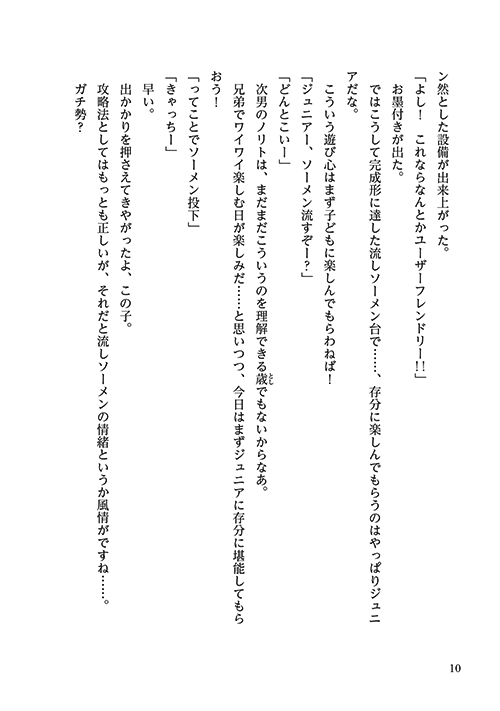 ン然とした設備が出来上がった。
「よし！　これならなんとかユーザーフレンドリー!!」
お墨付きが出た。
ではこうして完成形に達した流しソーメン台で……、存分に楽しんでもらうのはやっぱりジュニ
アだな。
こういう遊び心はまず子どもに楽しんでもらわねば！
「ジュニアー、ソーメン流すぞー？」
「どんとこいー」
次男のノリトは、まだまだこういうのを理解できる歳でもないからなあ。
とし
兄弟でワイワイ楽しむ日が楽しみだ……と思いつつ、今日はまずジュニアに存分に堪能してもら
おう！
「ってことでソーメン投下」
「きゃっちー」
早い。
出かかりを押さえてきやがったよ、この子。
攻略法としてはもっとも正しいが、それだと流しソーメンの情緒というか風情がですね……。
ガチ勢？
10